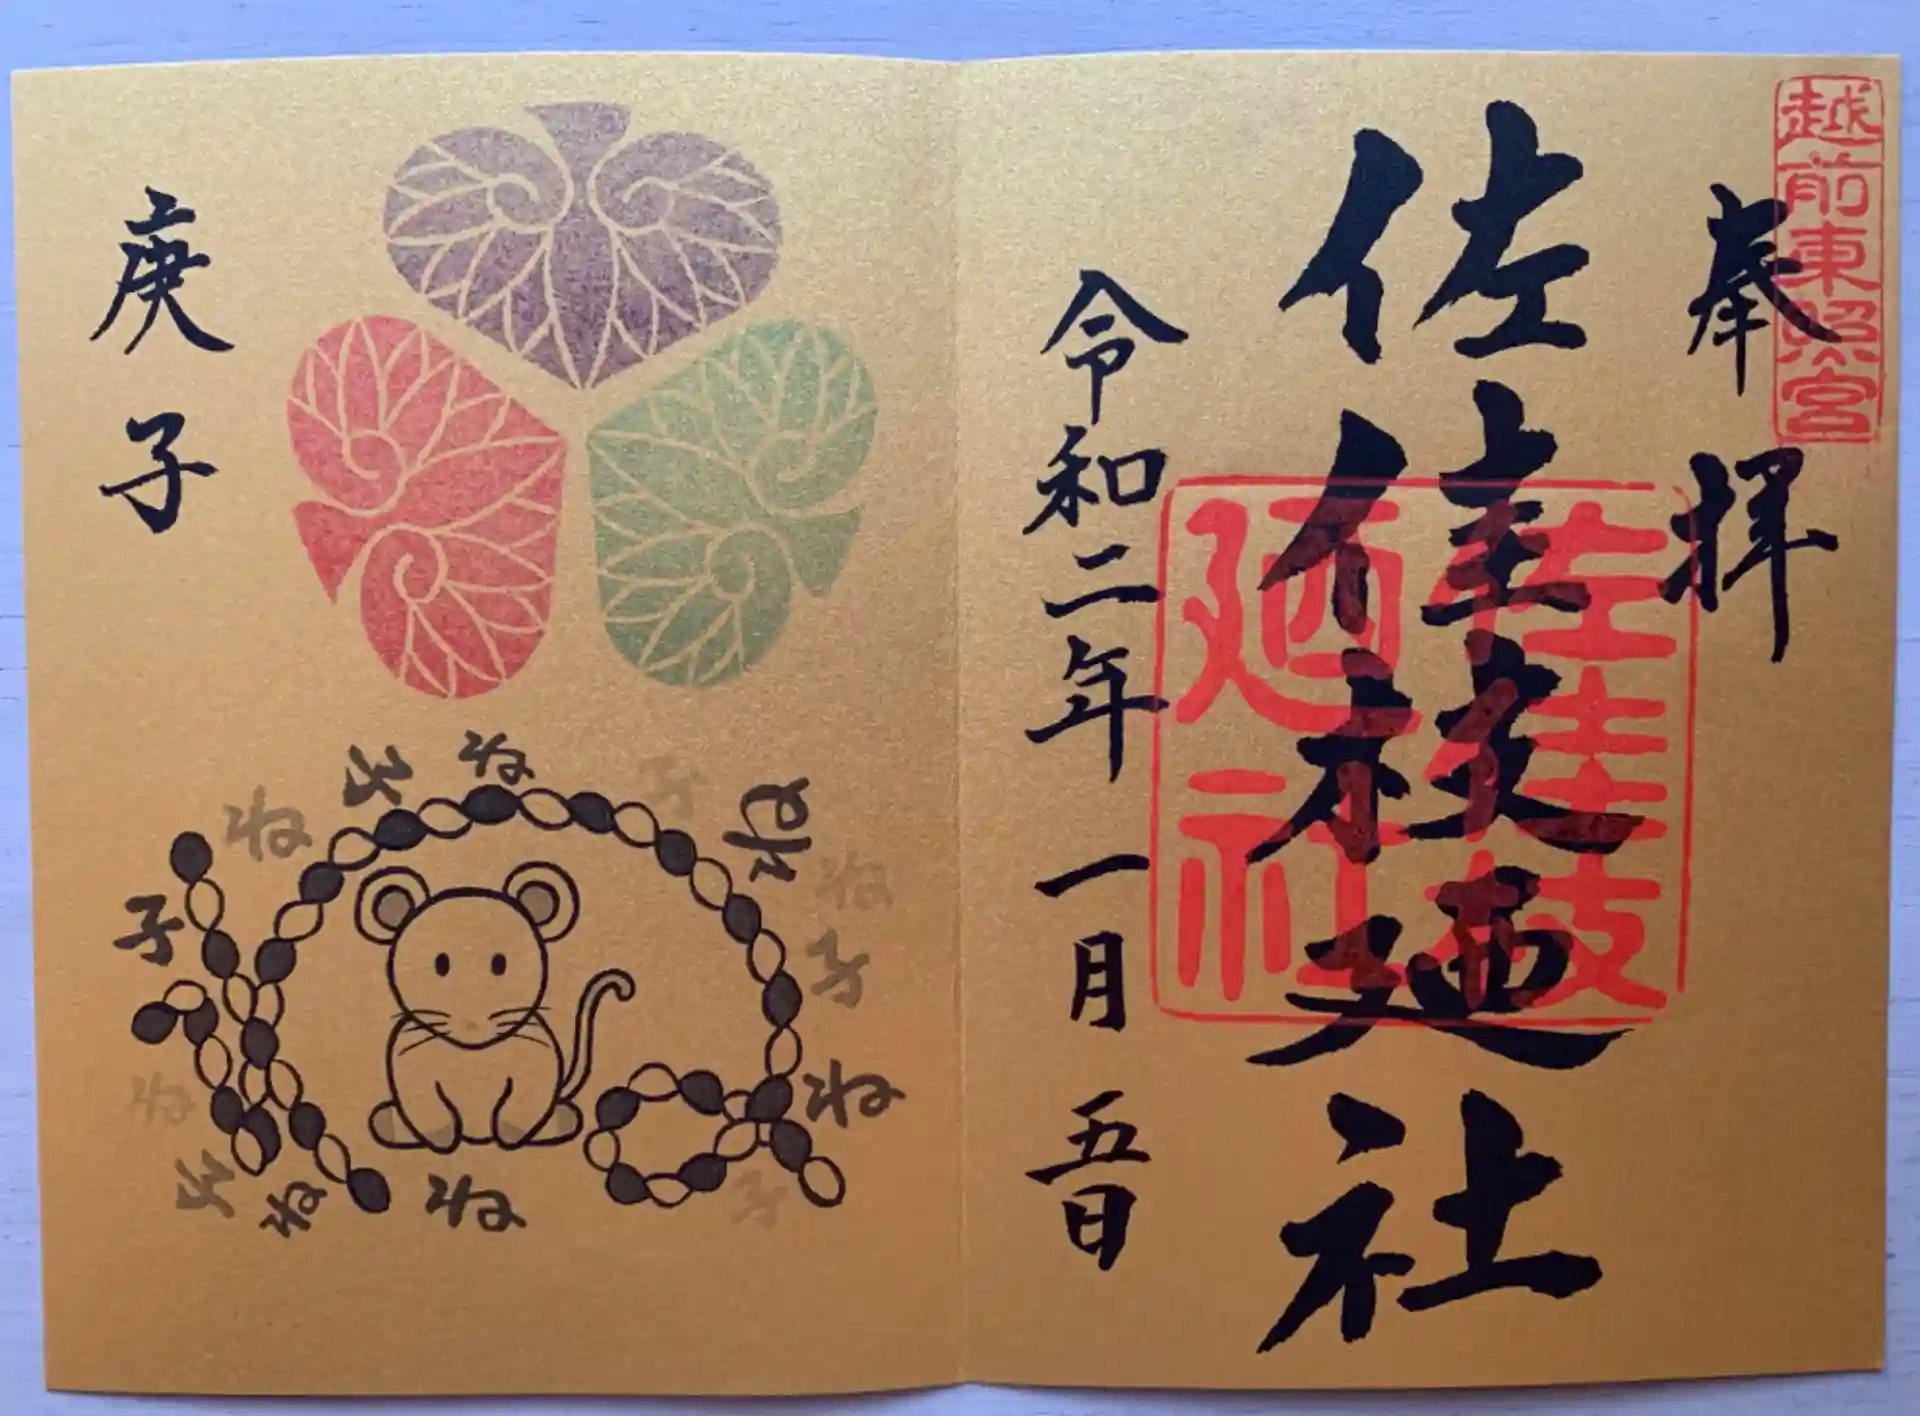 越前東照宮
奉拝
佐佳枝廼社
佐佳枝
廼社
令和二年一月五日
庚子
ね
子
ね
子
ね
ね
子
ね
子
ね
ね
子
ね
子